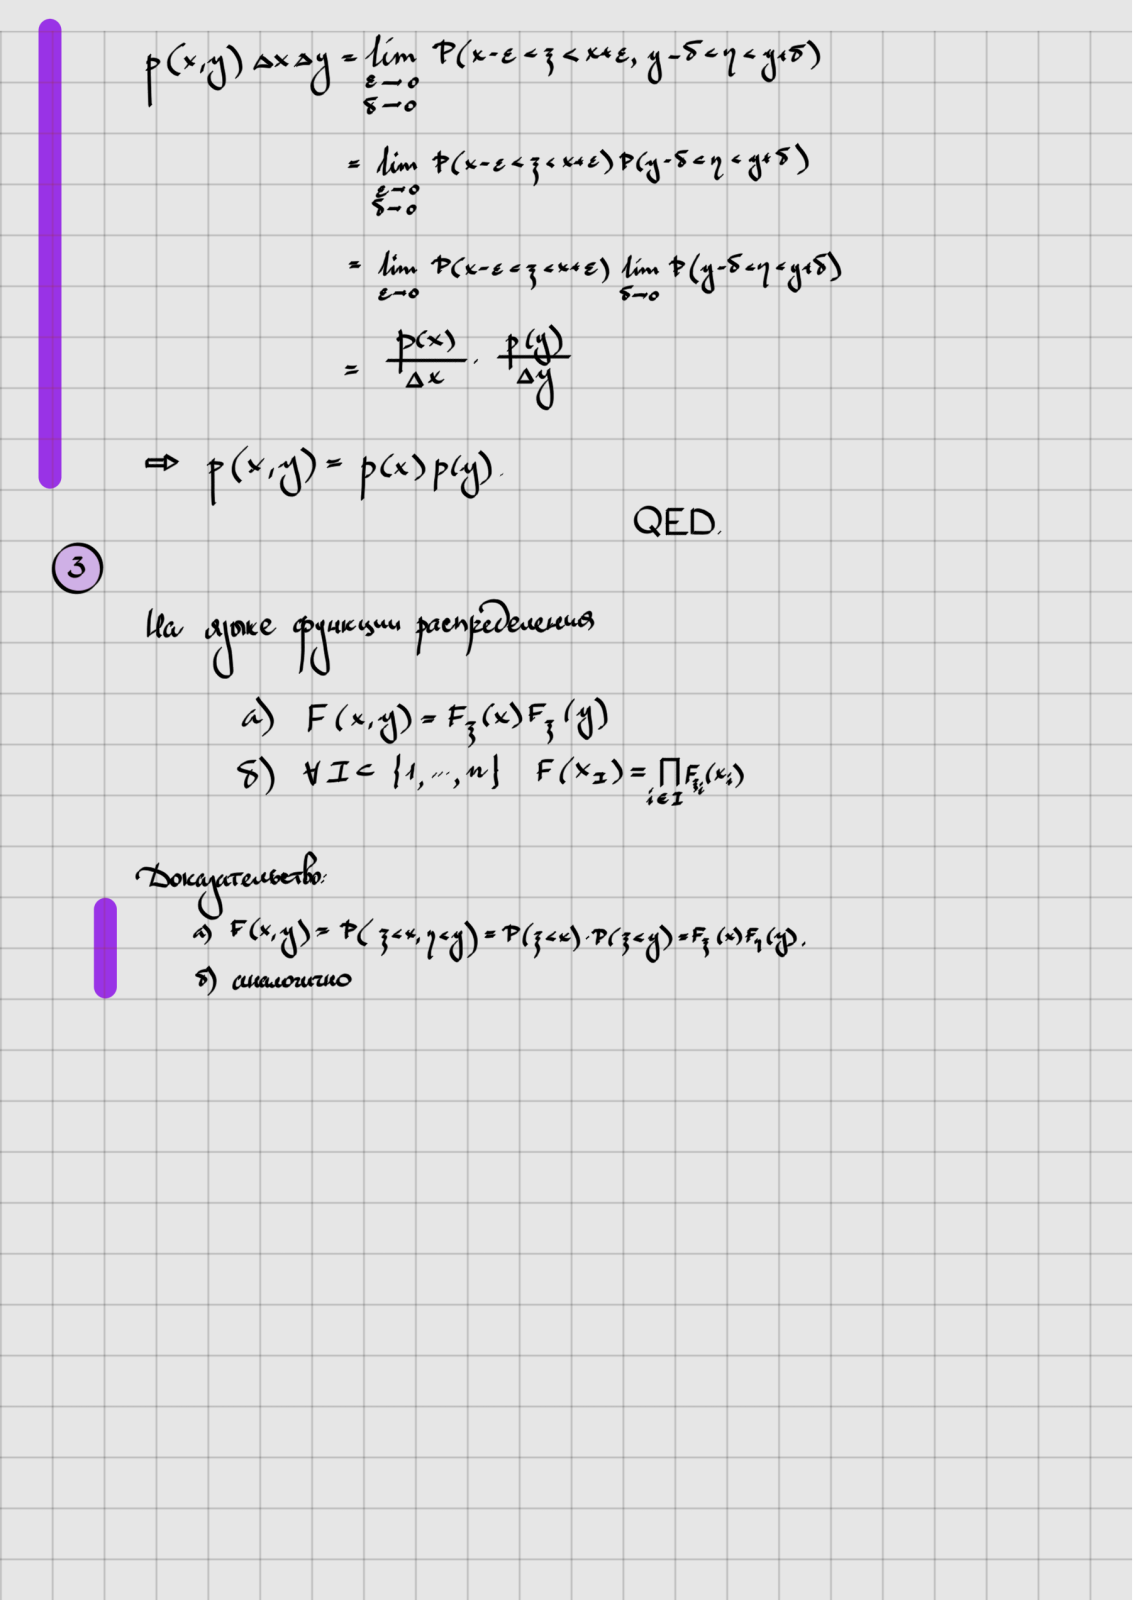 p(x,y) Δx Δy = lim P(x-ε<ξ<x+ε, y-δ<η<y+δ)
ε→0
δ→0
= lim P(x-ε<ξ<x+ε) P(y-δ<η<y+δ)
ε→0
δ→0
= lim P(x-ε<ξ<x+ε) lim P(y-δ<η<y+δ)
ε→0 δ→0
= p(x)/Δx · p(y)/Δy
⇒ p(x,y) = p(x) p(y).
QED.
3
На языке функции распределения
а) F(x,y) = F_ξ(x) F_ξ(y)
б) ∀ I ⊂ {1, ..., n} F(x_I) = ∏ F_ξi(x_i)
i∈I
Доказательство:
а) F(x,y) = P(ξ<x, η<y) = P(ξ<x) · P(ξ<y) = F_ξ(x) F_η(y).
б) аналогично